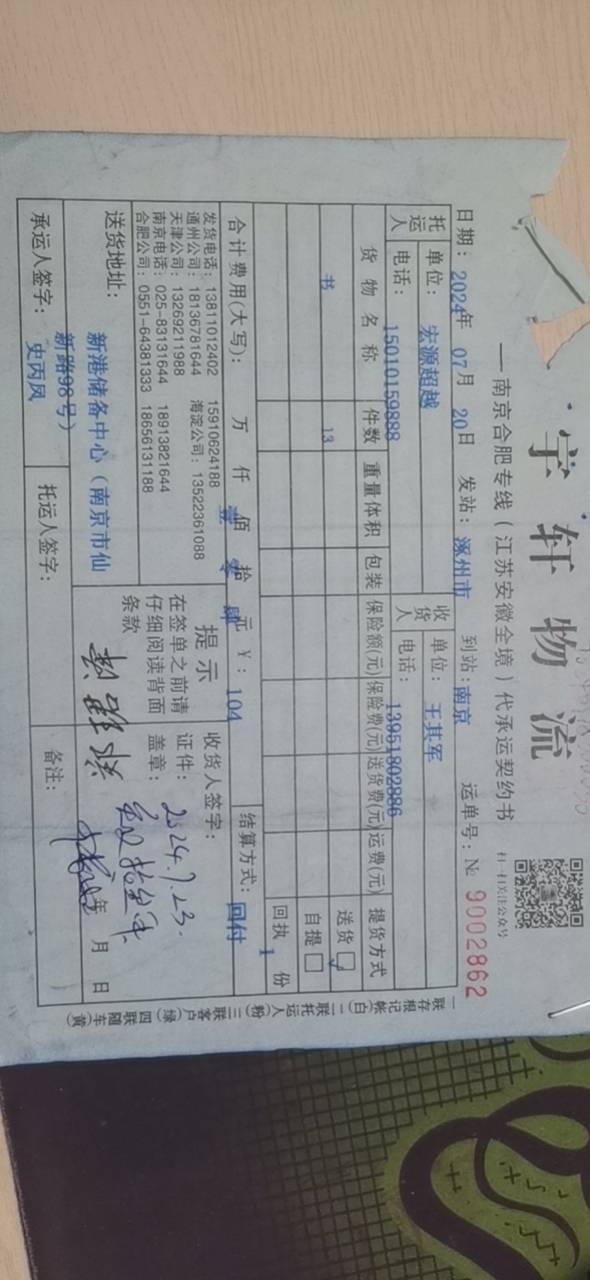 宇轩物流
扫一扫关注公众号
—南京合肥专线(江苏安徽全境)代承运契约书
日期: 2024年 07月 20日 发站: 涿州市 到站: 南京 运单号: № 9002862
托运人 单位: 宏源超越 收货人 单位: 王其军
电话: 15010159888 电话: 13951802886
货物名称 件数 重量体积 包装 保险额(元) 保险费(元) 送货费(元) 运费(元) 提货方式
书 13 送货 ☑
自提 □
回执 1 份
合计费用(大写): 万 仟 壹佰 零拾 肆元 ¥: 104 结算方式: 回付
发货电话: 13811012402 15910624188
通州公司: 18136781644 海淀公司: 13522361088
天津公司: 13269211988
南京电话: 025-83131644 18913821644
合肥公司: 0551-64381333 18656131188
提示
在签单之前请
仔细阅读背面
条款
收货人签字:
证件: 2024.7.23.
盖章:
年 月 日
送货地址: 新港储备中心(南京市仙
新路98号)
承运人签字: 史丙凤 托运人签字: 备注:
一联存根记帐(白) 二联托运人(粉) 三联客户(绿) 四联随车(黄)